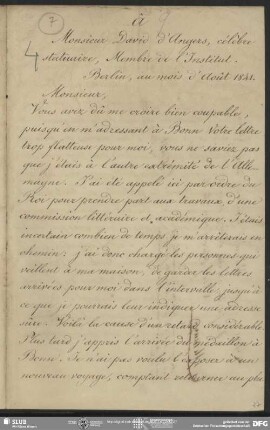 7
à
4
Monsieur David d'Angers, célèbre
statuaire, Membre de l'Institut.
Berlin, au mois d'Août 1841.
Monsieur,
Vous avez dû me croire bien coupable,
puisqu'en m'adressant à Bonn Votre lettre
trop flatteuse pour moi, vous ne saviez pas
que j'étais à l'autre extrémité de l'Alle-
magne. J'ai été appelé ici par ordre du
Roi pour prendre part aux travaux d'une
commission littéraire et académique. J'étais
incertain combien de temps je m'arrêterais en
chemin: j'ai donc chargé les personnes qui
veillent à ma maison, de garder les lettres
arrivées pour moi dans l'intervalle jusqu'à
ce que je pourrais leur indiquer une adresse
sûre. Voilà la cause d'un retard considérable.
Plus tard j'appris l'arrivée du médaillon à
Bonn. Je n'ai pas voulu l'exposer à un
nouveau voyage, comptant retourner au plu
SLUB
DFG